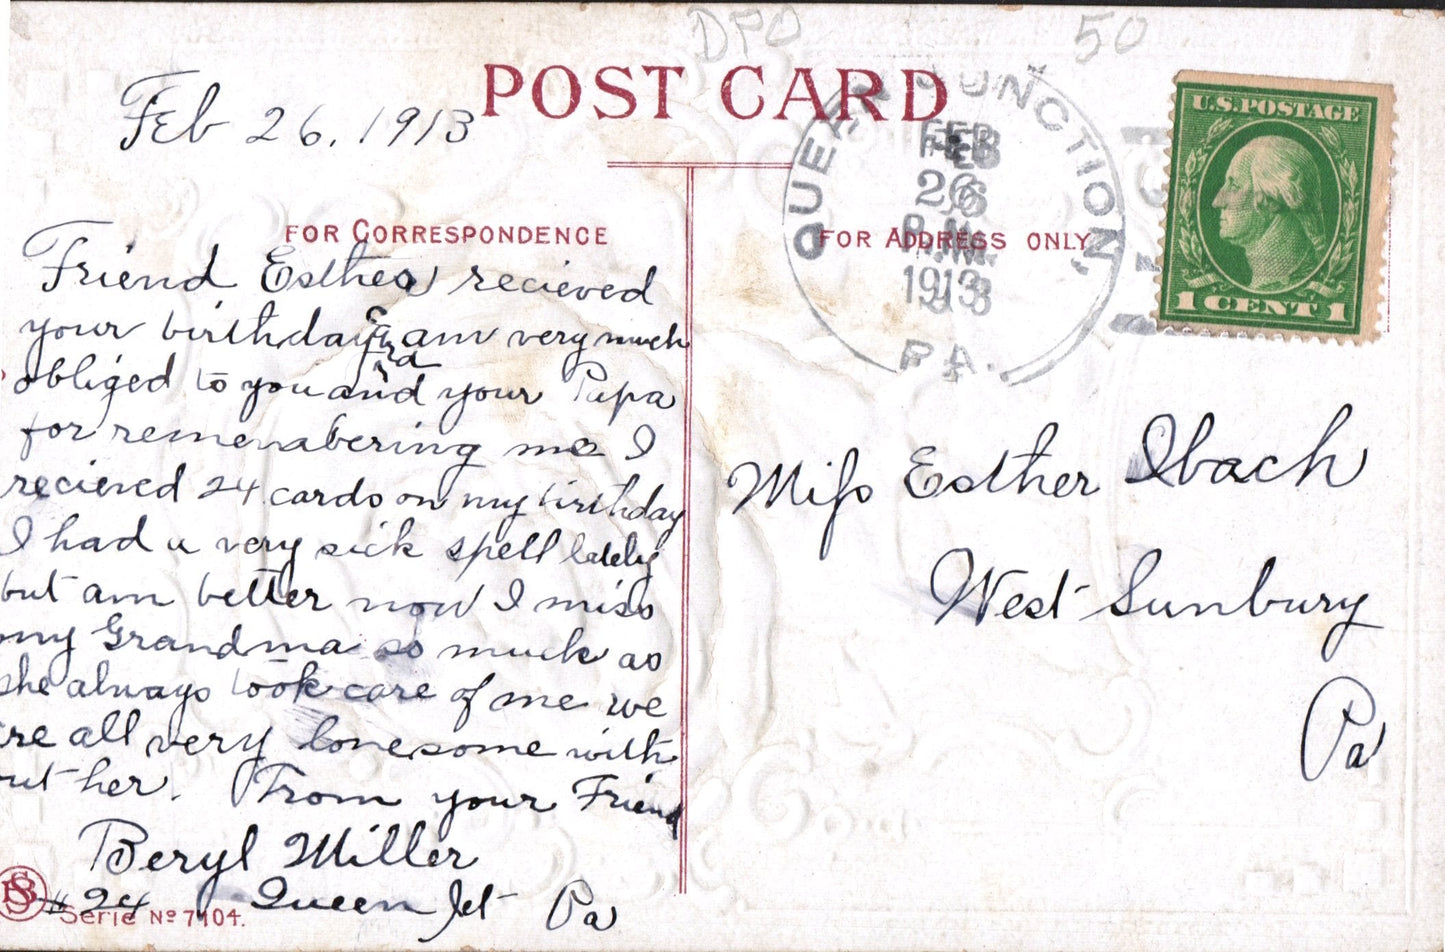 DPO 50
POST CARD
Feb 26, 1913
FOR CORRESPONDENCE
Friend Esther recieved
your birthday card am very much
obliged to you and your Papa
for remembering me I
recieved 24 cards on my birthday
I had a very sick spell lately
but am better now I miss
my Grandma so much as
she always took care of me we
are all very lonesome with
out her. From your Friend
Beryl Miller
#24 Queen Jct Pa
PSB
Serie No 7104.
QUEEN JUNCTION,
FEB
26
P.M.
1913
PA.
FOR ADDRESS ONLY
U.S. POSTAGE
1 CENT 1
Miss Esther Ibach
West Sunbury
Pa